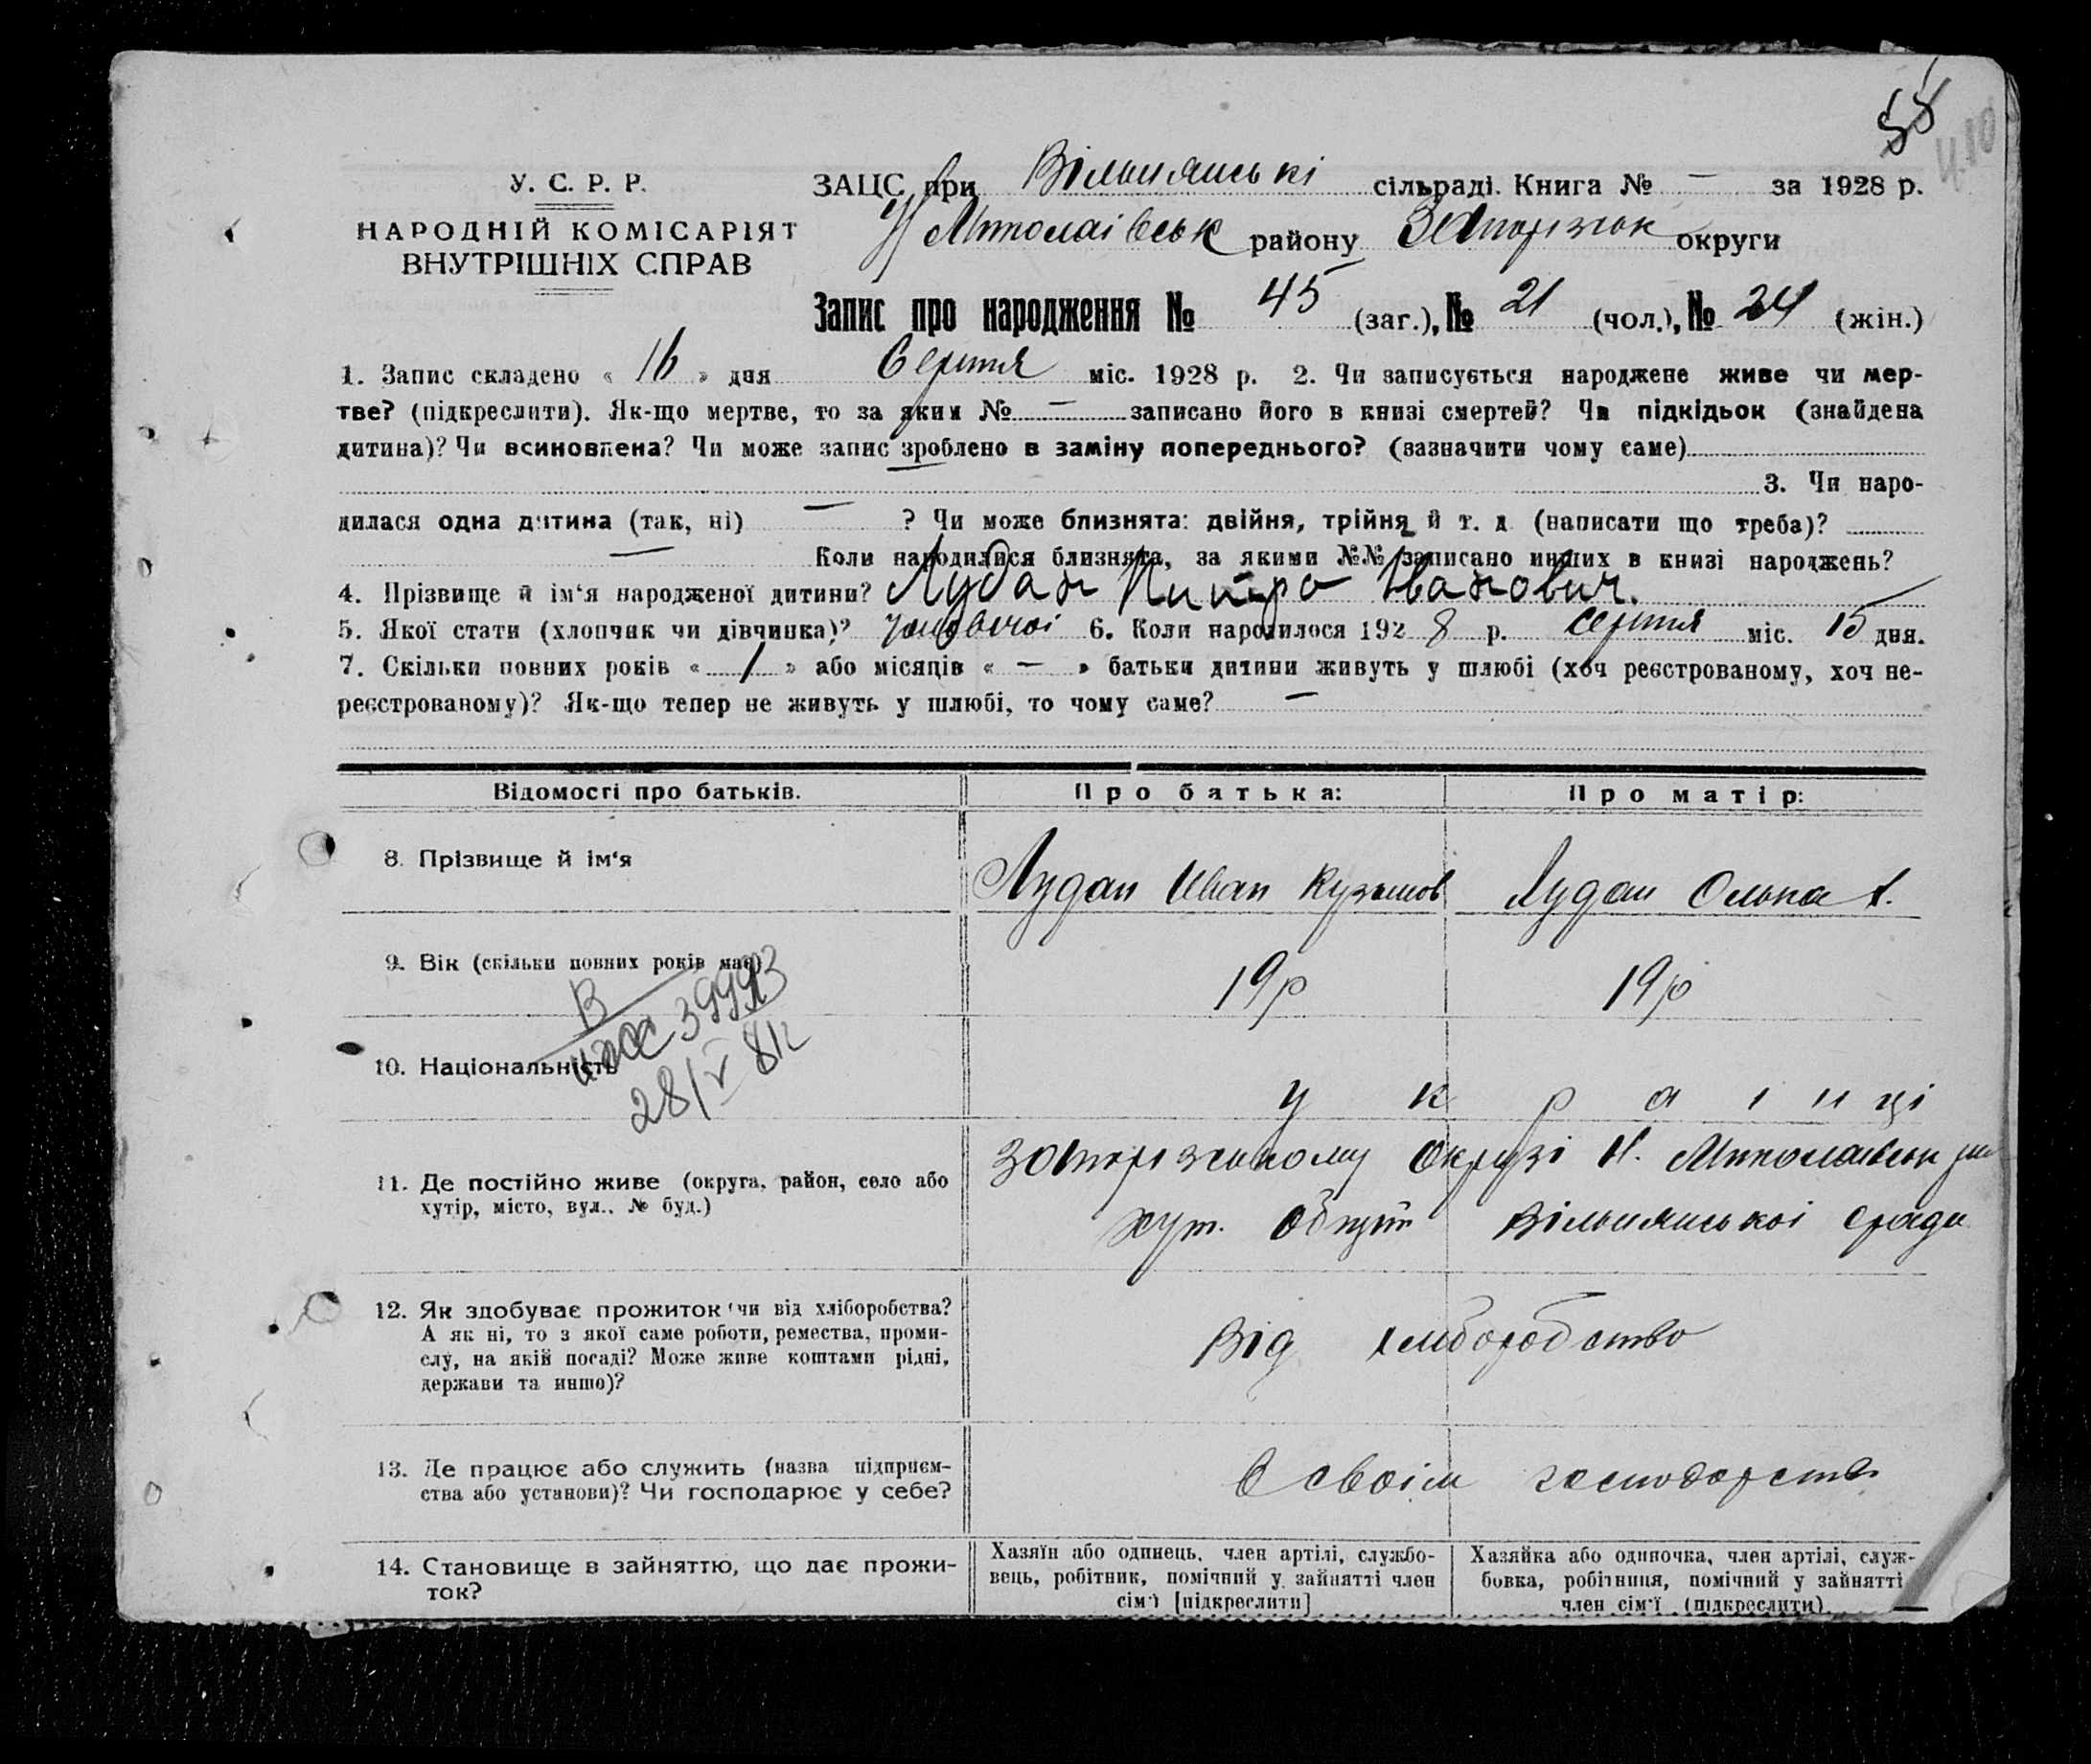 55
4.10
У. С. Р. Р.
НАРОДНІЙ КОМІСАРІЯТ
ВНУТРІШНІХ СПРАВ
ЗАЦС при Вільнянські сільраді. Книга № — за 1928 р.
Н Миколаівськ району Запоріжок округи
Запис про народження № 45 (заг.), № 21 (чол.), № 24 (жін.)
1. Запис складено « 16 » дня Серпня міс. 1928 р. 2. Чи записується народжене живе чи мер-
тве? (підкреслити). Як-що мертве, то за яким № — записано його в книзі смертей? Чи підкідьок (знайдена
дитина)? Чи всиновлена? Чи може запис зроблено в заміну попереднього? (зазначити чому саме)
3. Чи наро-
дилася одна дитина (так, ні) — ? Чи може близнята: двійня, трійня й т. д (написати що треба)?
— Коли народилися близнята, за якими №№ записано инших в книзі народжень?
4. Прізвище й ім'я народженої дитини? Лудан Питро Иванович.
5. Якої статі (хлопчик чи дівчинка)? чоловічоі 6. Коли народилося 1928 р. серпня міс. 15 дня.
7. Скільки повних років « 1 » або місяців « — » батьки дитини живуть у шлюбі (хоч реєстрованому, хоч не-
реєстрованому)? Як-що тепер не живуть у шлюбі, то чому саме? —
Відомості про батьків. Про батька: Про матір:
8. Прізвище й ім'я Лудан Иван Кузьмов Лудан Олька А.
9. Вік (скільки повних років має) 19р 19р
В
39993
28/V 81г
10. Національність украінці
11. Де постійно живе (округа, район, село або
хутір, місто, вул., № буд.)
Запоріжському Окрузі Н. Миколаівськ
хут. Вільнянськоі сради
12. Як здобуває прожиток (чи від хліборобства?
А як ні, то з якої саме роботи, ремества, проми-
слу, на якій посаді? Може живе коштами рідні,
держави та иншо)?
Від хліборобство
13. Де працює або служить (назва підприєм-
ства або установи)? Чи господарює у себе?
В своім господарстві
14. Становище в зайняттю, що дає прожи-
ток?
Хазяїн або одинець, член артілі, службо-
вець, робітник, помічний у зайнятті член
сім'ї [підкреслити]
Хазяйка або одиночка, член артілі, служ-
бовка, робітниця, помічний у зайнятті
член сім'ї (підкреслити)